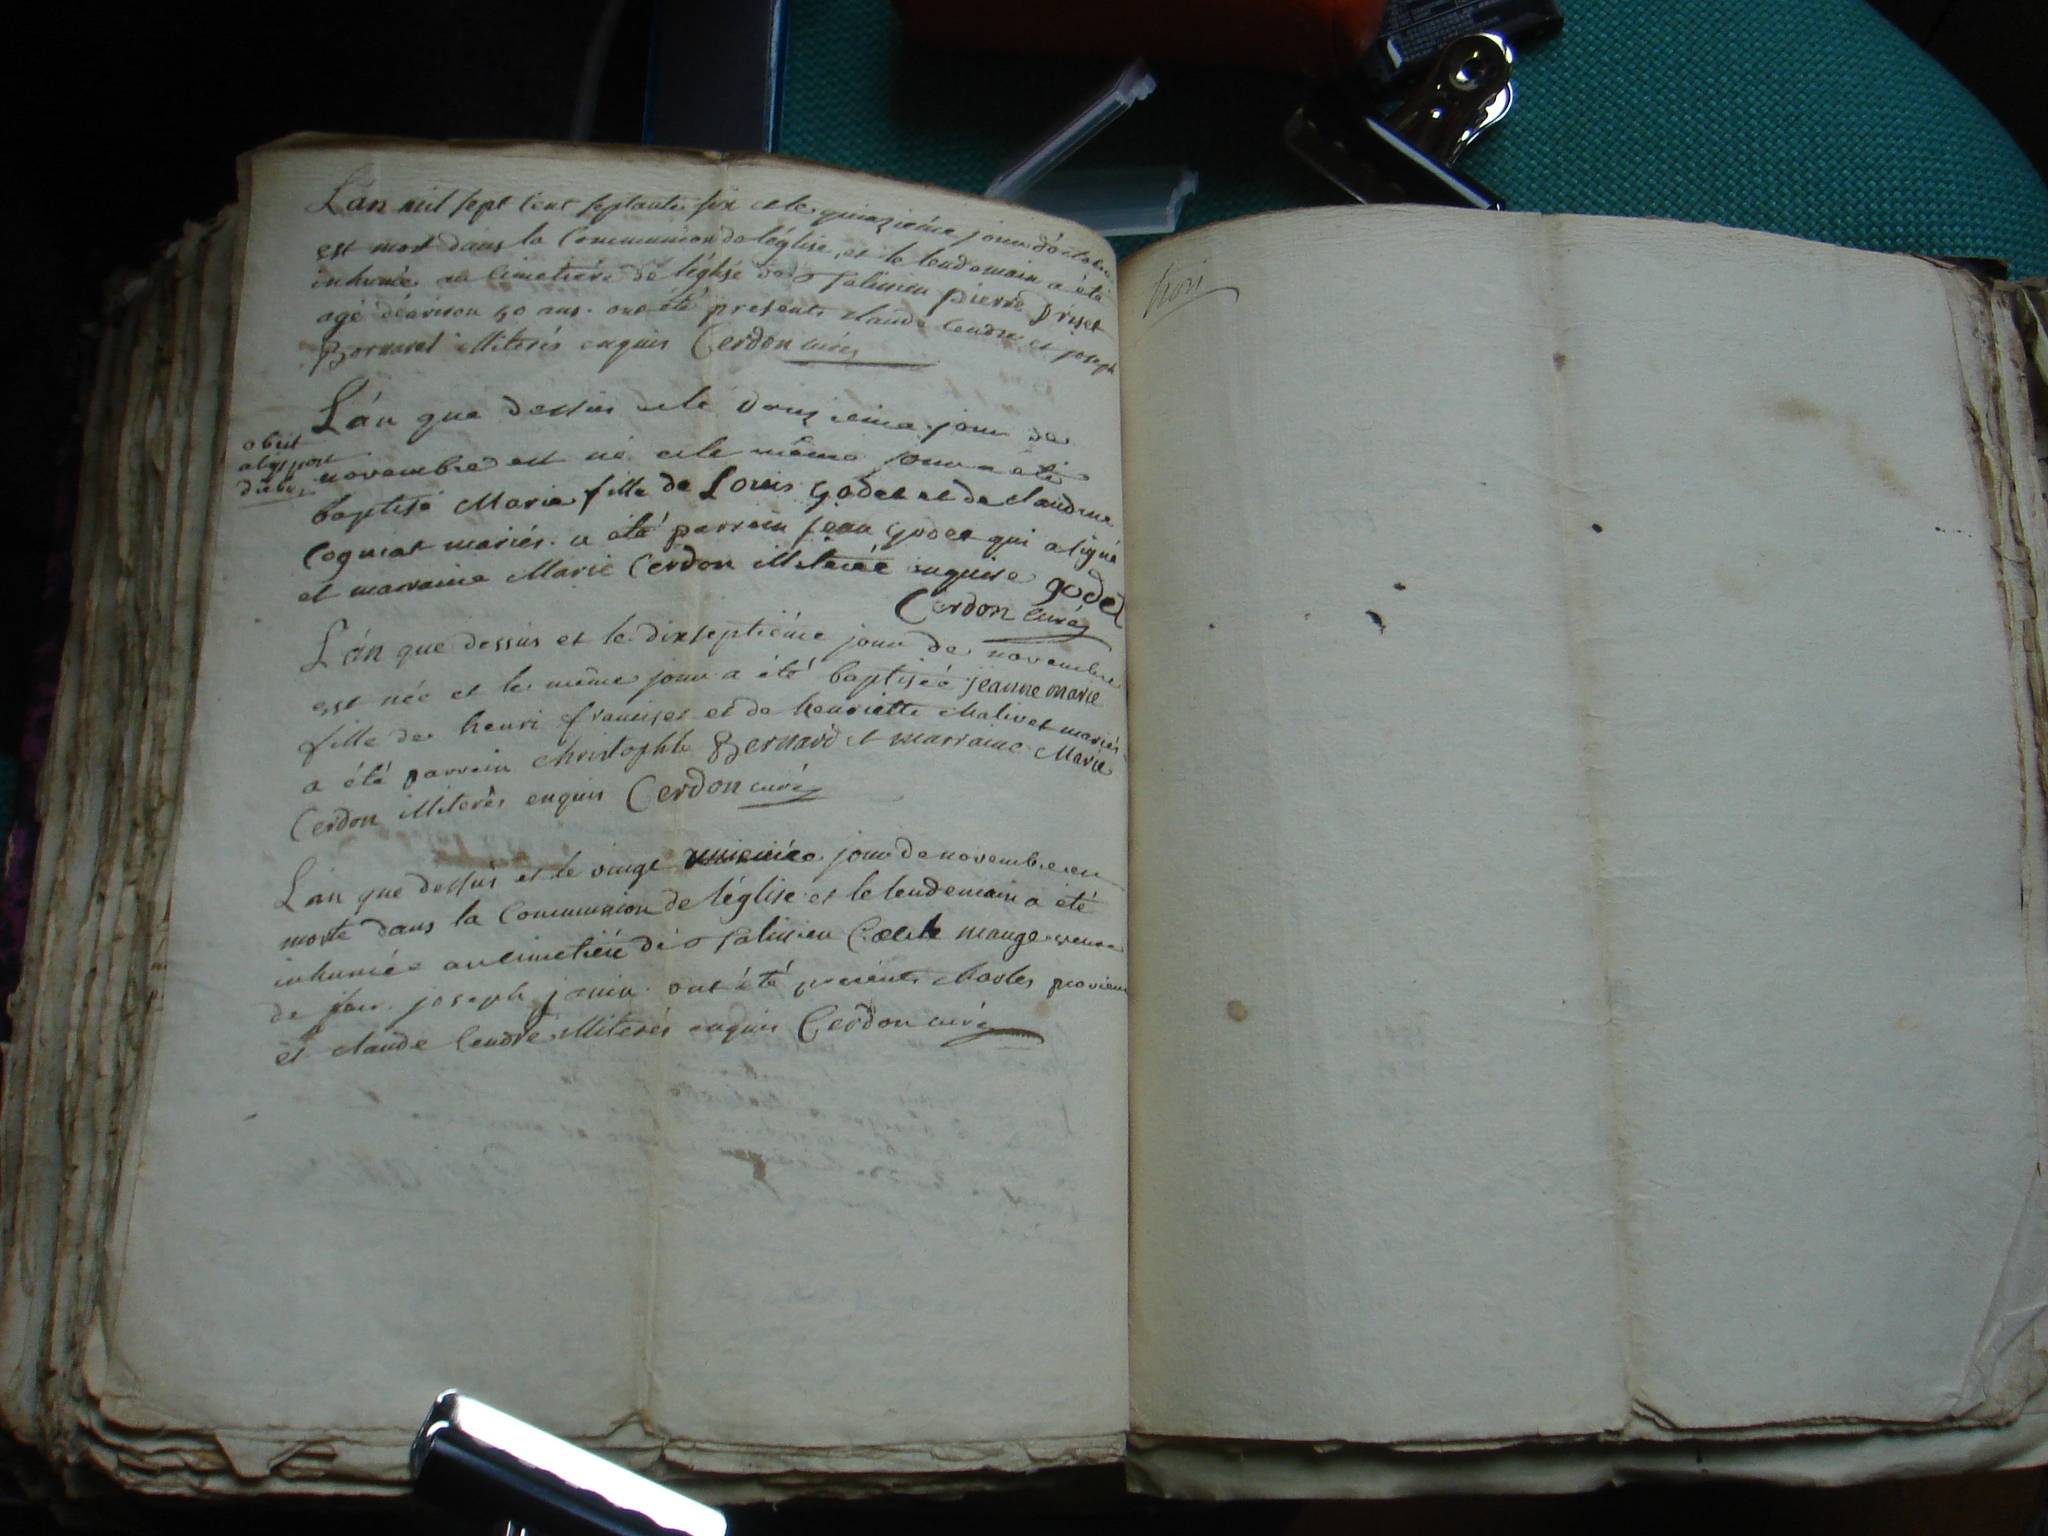 L'an mil sept cent septante six et le quinzieme jour d'octobre
est mort dans la Communion de l'église, et le lendemain a été
inhumé au cimetiére de l'église de Pierre Driset
agé d'environ 50 ans. ont été presents claude Cendre et joseph
Bornuat illiterés enquis Cerdon curé
L'an que dessus et le douzieme jour de
novembre est né et le même jour a été
baptisé Marie fille de Louis godet et de claudine
Cogniat mariés. a été parrain jean godet qui a signé
et marraine Marie Cerdon illiterée enquise godet
Cerdon curé
obiit
L'an que dessus et le dixseptiéme jour de novembre
est née et le même jour a été baptisée jeanne marie
fille de henri franciset et de henriette Malivet mariés
a été parrain christophle Bernard et marraine Marie
Cerdon illiterés enquis Cerdon curé
L'an que dessus et le vingt jour de novembre est
morte dans la Communion de l'église et le lendemain a été
inhumée au cimetiére de mange veuve
de joseph janin. ont été presents charles
et claude Cendre illiterés enquis Cerdon curé